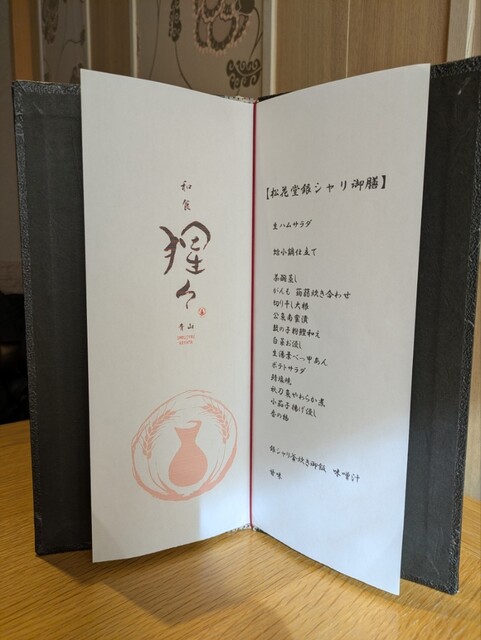 和食
猩々
青山
【松花堂銀シャリ御膳】
生ハムサラダ
蛤小鍋仕立て
茶碗蒸し
がんも 蒟蒻炊き合わせ
切り干し大根
公魚南蛮漬
数の子粕鰹和え
白菜お浸し
生湯葉べっ甲あん
ポテトサラダ
鯖塩焼
秋刀魚やわらか煮
小茄子揚げ浸し
香の物
銀シャリ釜炊き御飯 味噌汁
甘味